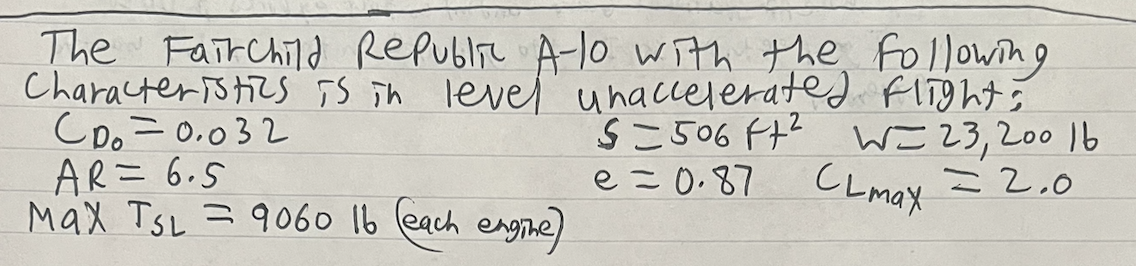 The Fairchild Republic A-10 with the following
characteristics is in level unaccelerated flight:
C_D₀ = 0.032 S = 506 ft² W = 23,200 lb
AR = 6.5 e = 0.87 C_Lmax = 2.0
Max T_SL = 9060 lb (each engine)